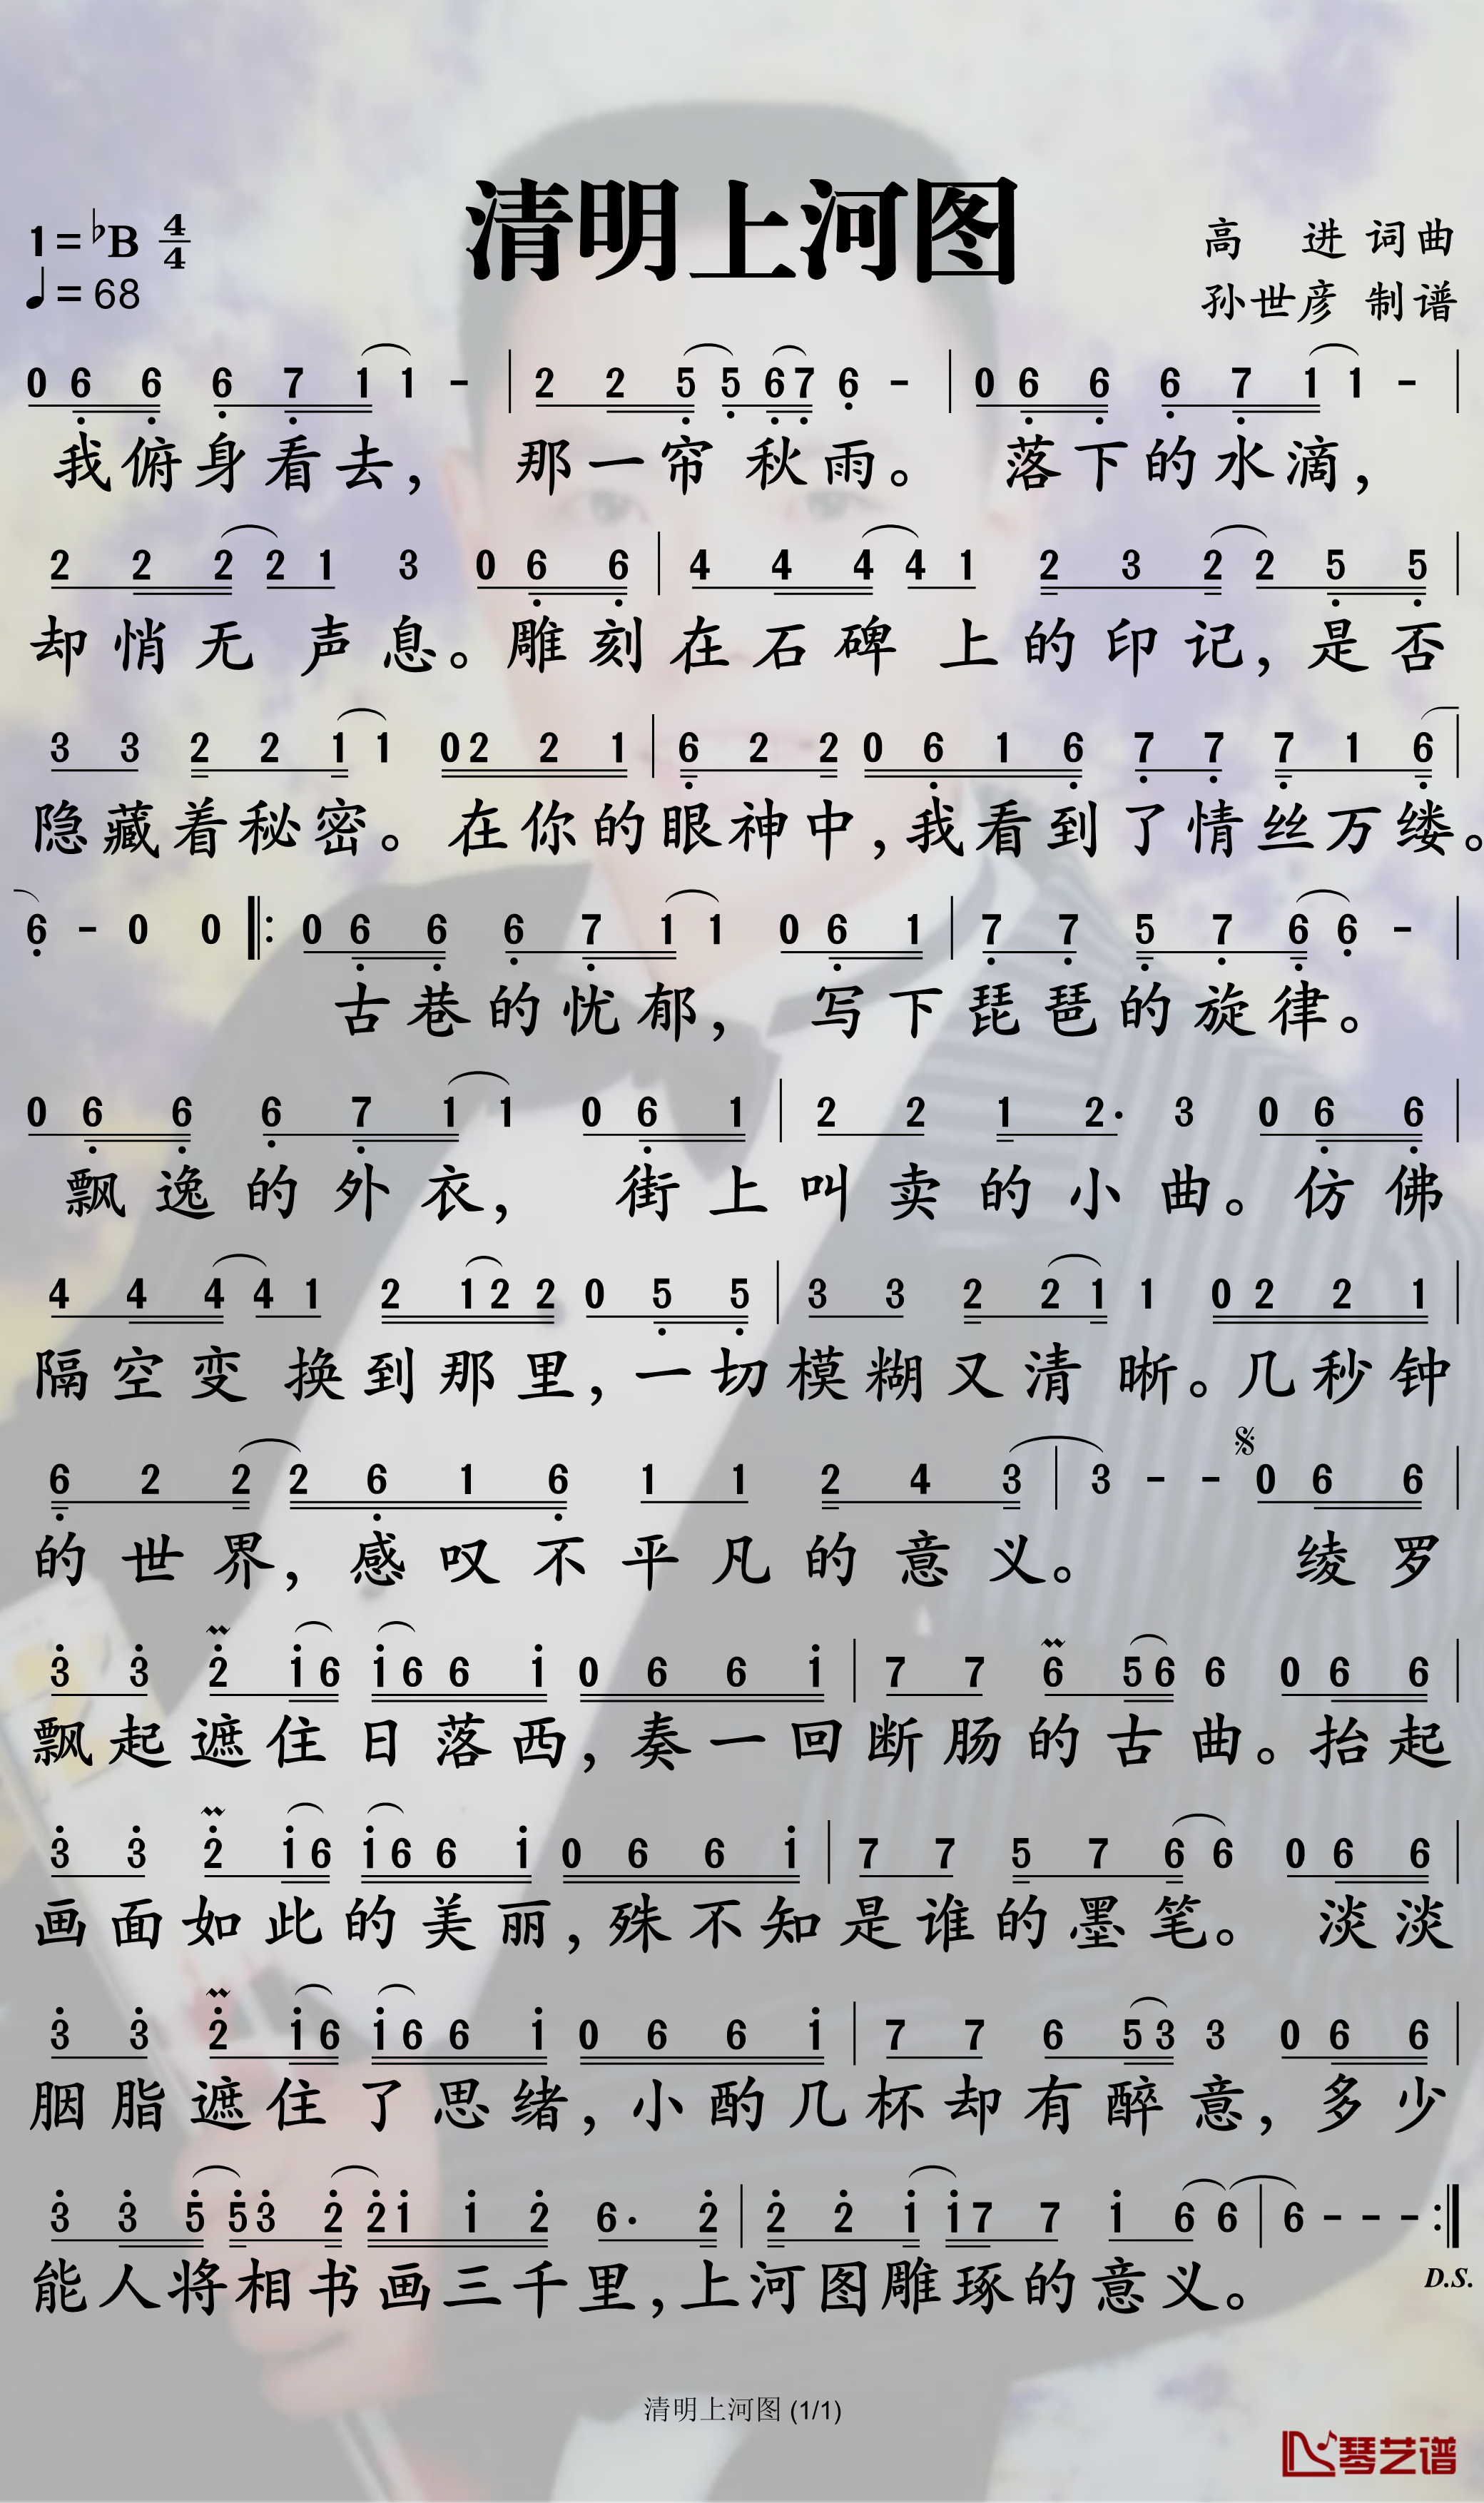 清明上河图
1=♭B 4/4
♩=68
高 进 词曲
孙世彦 制谱
0 6 6 6 7 1 1 - | 2 2 5 5 6 7 6 - | 0 6 6 6 7 1 1 - |
我俯身看去， 那一帘秋雨。 落下的水滴，
2 2 2 2 1 3 0 6 6 | 4 4 4 4 1 2 3 2 2 5 5 |
却悄无声息。雕刻在石碑上的印记，是否
3 3 2 2 1 1 0 2 2 1 | 6 2 2 0 6 1 6 7 7 7 1 6 |
隐藏着秘密。在你的眼神中，我看到了情丝万缕。
6 - 0 0 ‖: 0 6 6 6 7 1 1 0 6 1 | 7 7 5 7 6 6 - |
古巷的忧郁， 写下琵琶的旋律。
0 6 6 6 7 1 1 0 6 1 | 2 2 1 2· 3 0 6 6 |
飘逸的外衣， 街上叫卖的小曲。仿佛
4 4 4 4 1 2 1 2 2 0 5 5 | 3 3 2 2 1 1 0 2 2 1 |
隔空变换到那里，一切模糊又清晰。几秒钟
6 2 2 2 6 1 6 1 1 2 4 3 | 3 - - 𝄋 0 6 6 |
的世界，感叹不平凡的意义。 绫罗
3 3 2 1 6 1 6 6 1 0 6 6 1 | 7 7 6 5 6 6 0 6 6 |
飘起遮住日落西，奏一回断肠的古曲。抬起
3 3 2 1 6 1 6 6 1 0 6 6 1 | 7 7 5 7 6 6 0 6 6 |
画面如此的美丽，殊不知是谁的墨笔。 淡淡
3 3 2 1 6 1 6 6 1 0 6 6 1 | 7 7 6 5 3 3 0 6 6 |
胭脂遮住了思绪，小酌几杯却有醉意，多少
3 3 5 5 3 2 2 1 1 2 6· 2 | 2 2 1 1 7 7 1 6 6 | 6 - - - :‖
能人将相书画三千里，上河图雕琢的意义。
D.S.
清明上河图 (1/1)
琴艺谱